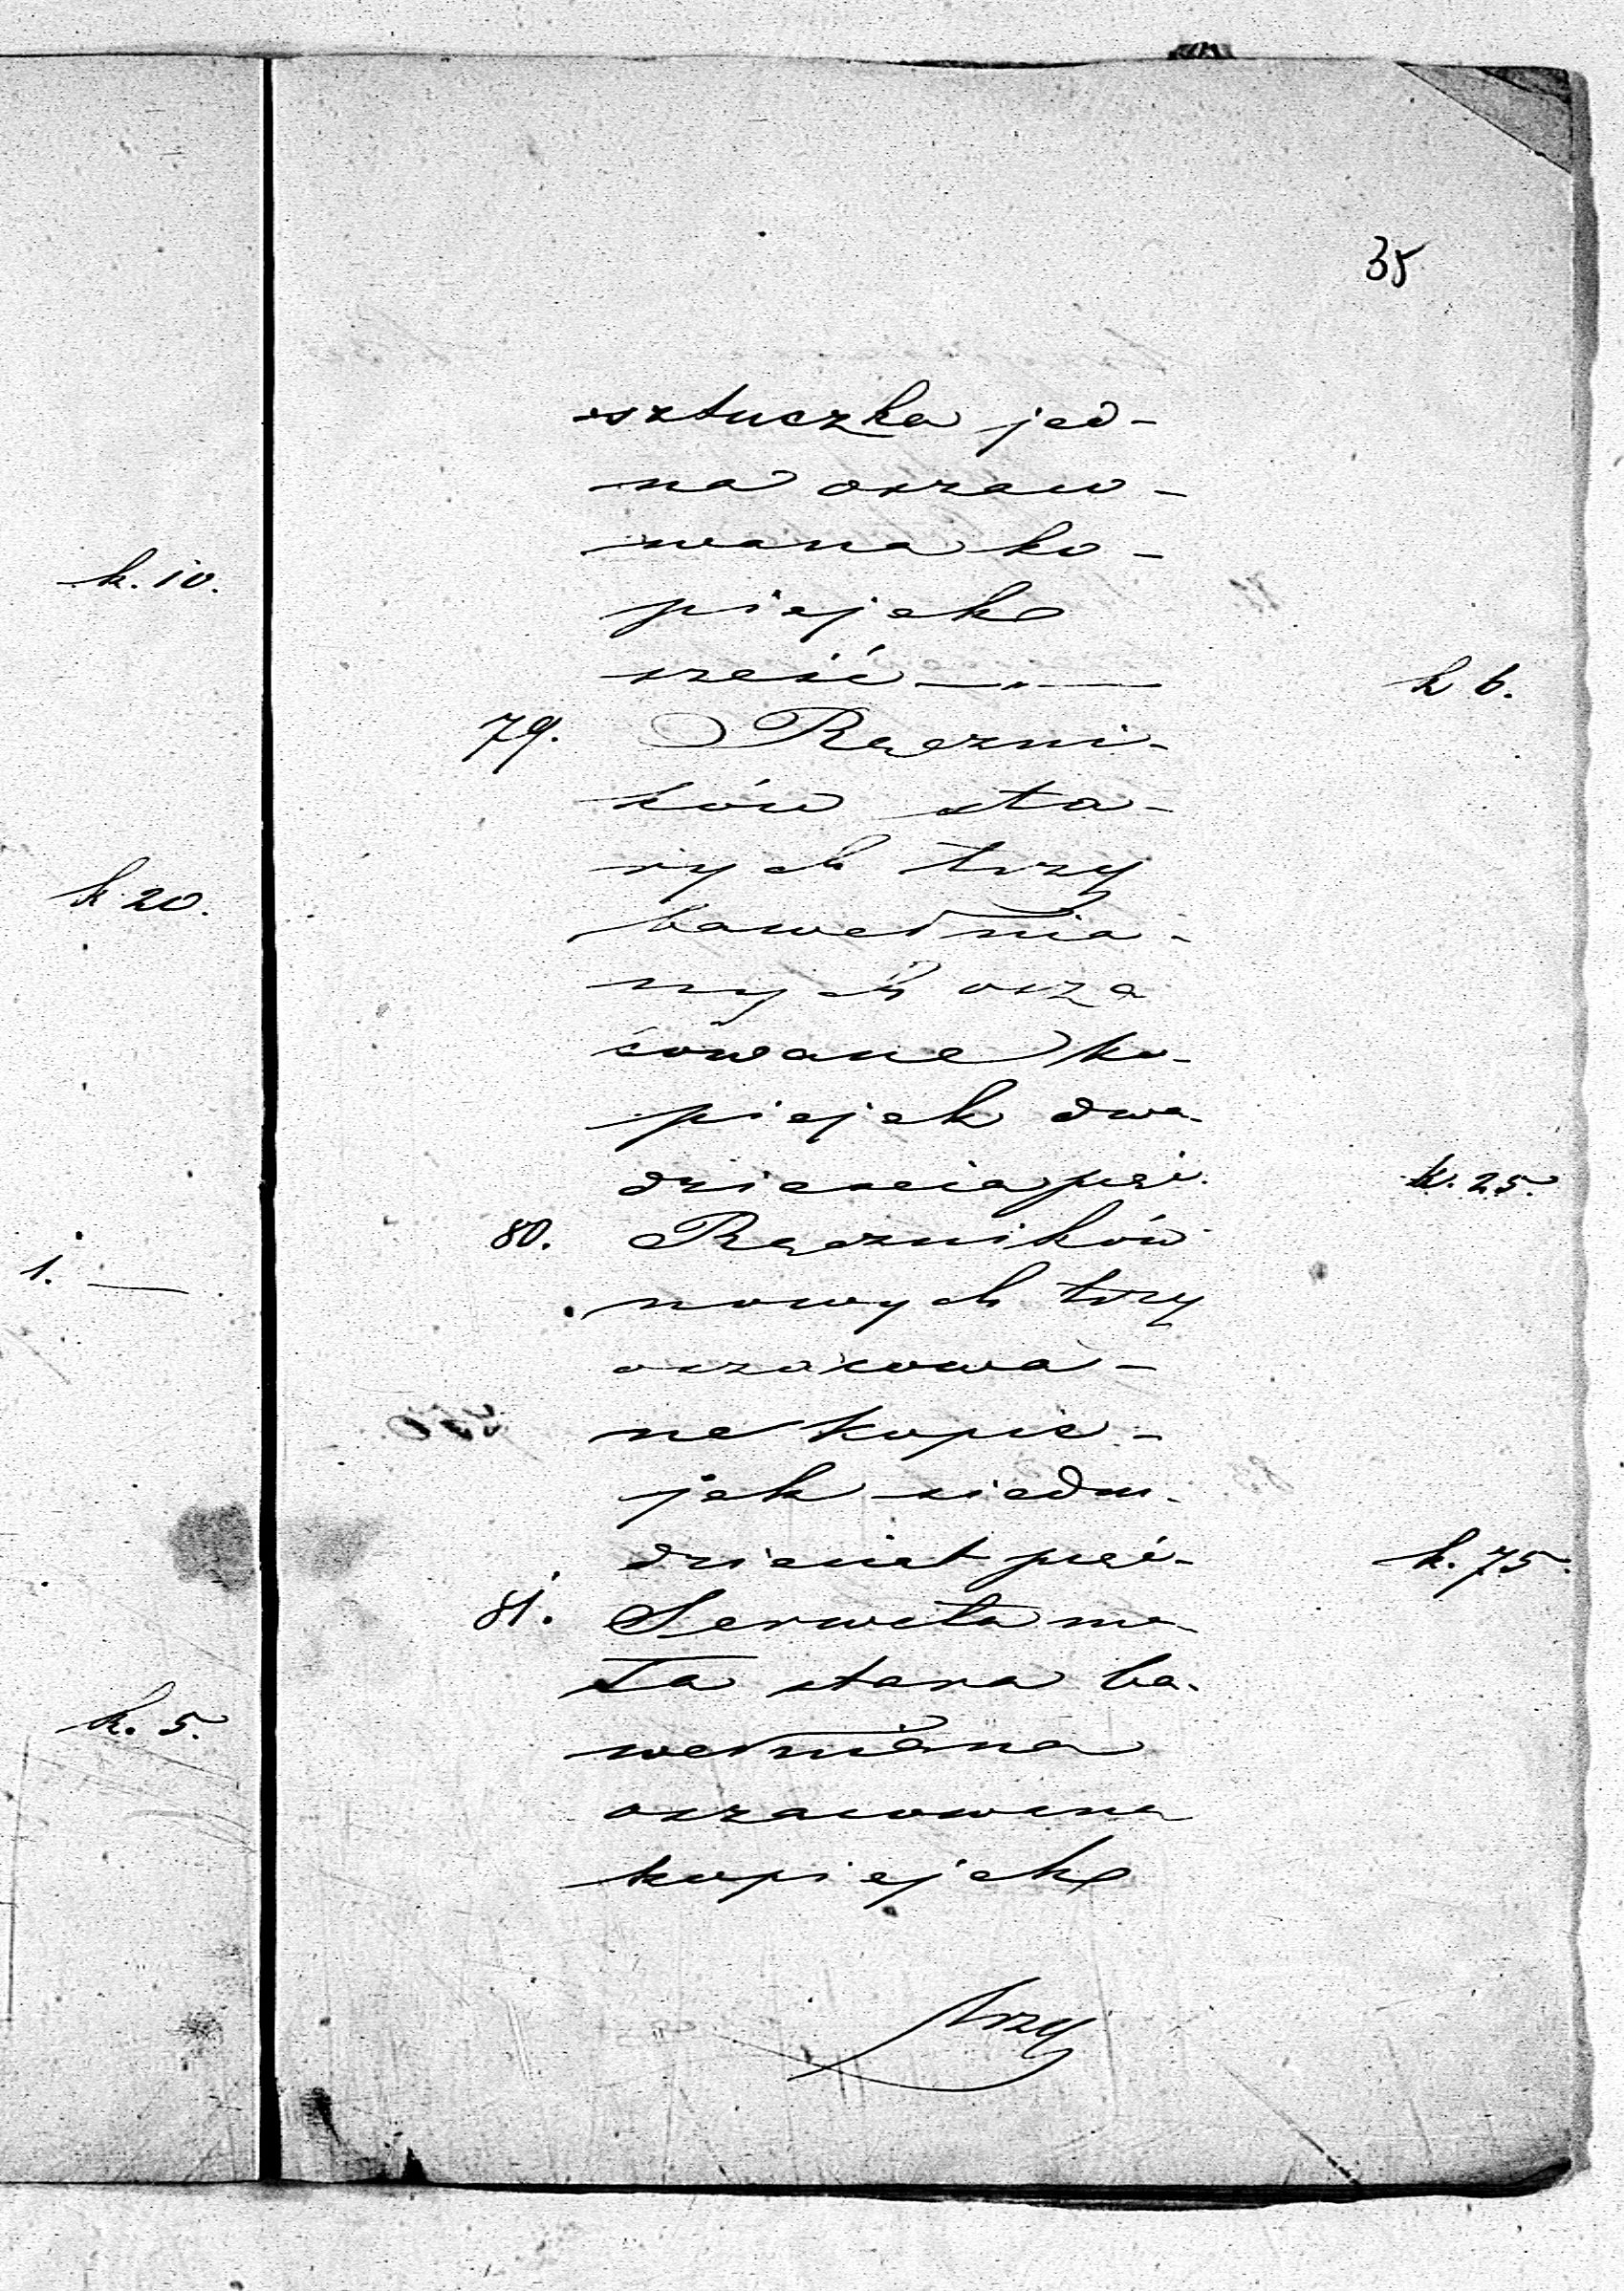 35
k. 10.
k 20.
1. —
k. 5.
sztuczka jed-
na oszaco-
wana ko-
piejek
sześć — " —
k 6.
79. Ręczni-
ków sta-
rych trzy
bawełnia-
nych osza
cowane ko-
piejek dwa-
dzieścia pięć.
k. 25.
80. Ręczników
nowych trzy
oszacowa-
ne kopie-
jek siedm-
dziesiąt pięć-
k. 75.
81. Serweta ma-
ła stara ba-
wełniana
oszacowana
kopiejek
trzy